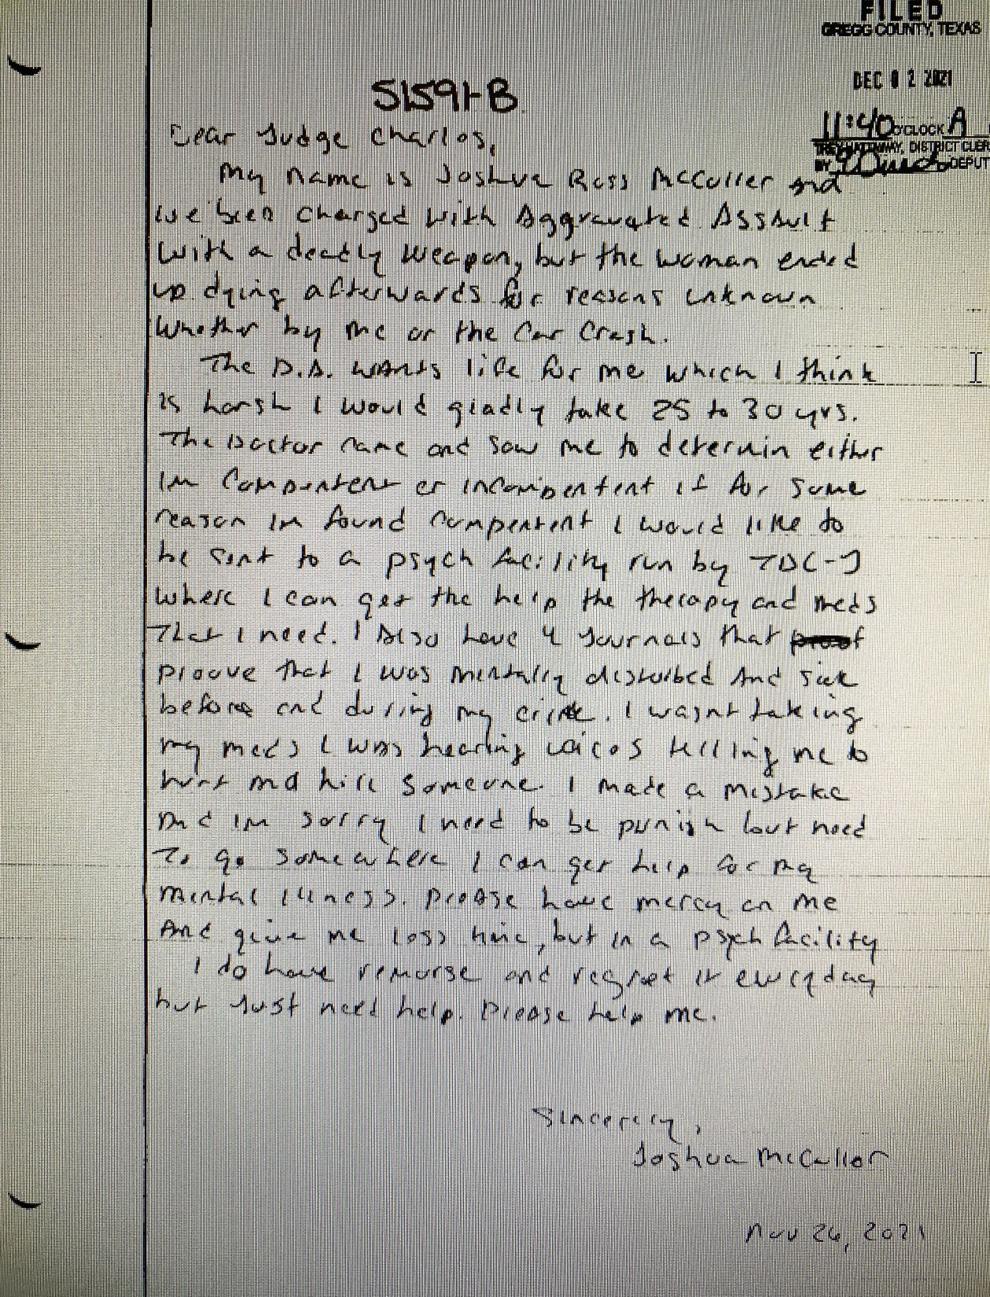 FILED
GREGG COUNTY, TEXAS
DEC 02 2021
11:40 O'CLOCK A
TREY HATTAWAY, DISTRICT CLER
BY DEPUT
51591-B
Dear Judge Charles,
My name is Joshua Ross McCuller and
ive been charged with Aggravated Assault
with a deadly weapon, but the woman ended
up dying afterwards for reasons unknown
whether by me or the Car Crash.
The D.A. wants life for me which I think
is harsh I would gladly take 25 to 30 yrs.
The Doctor came and saw me to determin either
im Compentent or incompentent if for some
reason im found Compentent I would like to
be sent to a psych facility run by TDC-J
where I can get the help the therapy and meds
That I need. I Also have 4 Journals that
proove that I was mentally disturbed And sick
before and during my crime. I wasnt taking
my meds I was hearing voices telling me to
hurt and kill someone. I made a mistake
And im sorry I need to be punish but need
To go somewhere I can get help for my
mental illness. Please have mercy on me
And give me less time, but in a psych facility
I do have remorse and regret it everyday
but Just need help. Please help me.
Sincerely,
Joshua McCuller
Nov 26, 2021